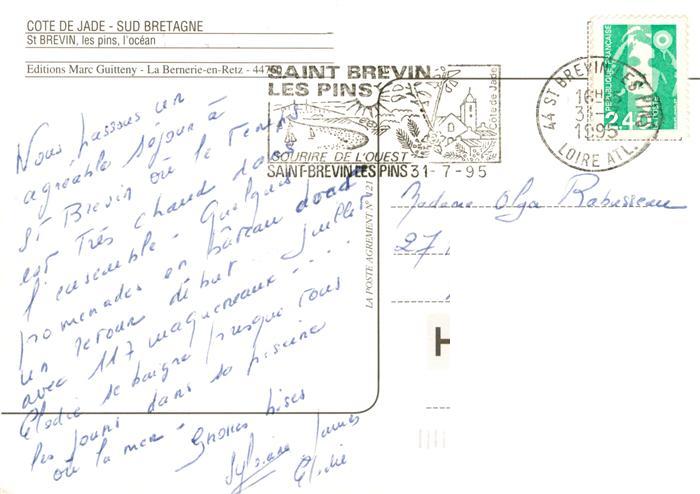 COTE DE JADE - SUD BRETAGNE
St BREVIN, les pins, l'océan
Editions Marc Guitteny - La Bernerie-en-Retz - 44760
SAINT BREVIN
LES PINS
Côte de Jade
SOURIRE DE L'OUEST
SAINT-BREVIN LES PINS 31-7-95
44 ST BREVIN LES PINS
16H
31-7
1995
LOIRE ATL.
REPUBLIQUE FRANÇAISE
2,40
LA POSTE AGREMENT N° 421
Nous passons un
agréable séjour à
St Brevin où le temps
est très chaud dans
l'ensemble - Quelques
promenades en bâteau dont
un retour début juillet
avec 117 maquereaux - ...
Elodie se baigne presque tous
les jours dans la piscine
où la mer - Grosses bises
Sylviane James
Elodie
Madame Olga Rabusseau
27
H